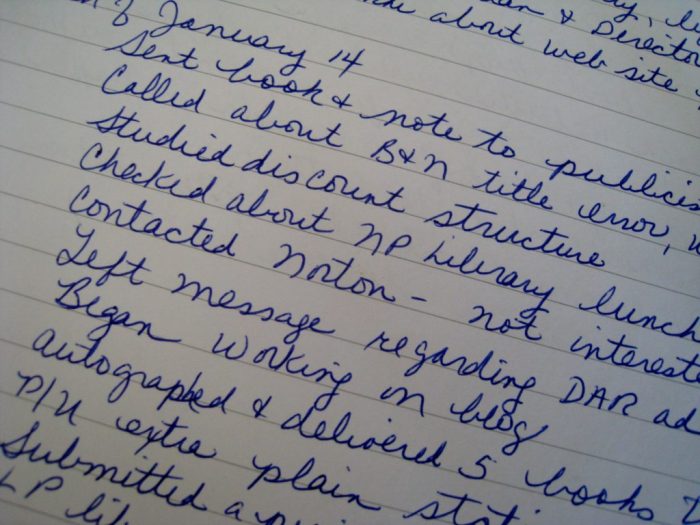 & Director
about web site
January 14
Sent book & note to publicis
Called about B&N title error,
Studied discount structure
Checked about NP Library lunch
Contacted Norton - not intereste
Left message regarding DAR ad
Began working on blog
Autographed & delivered 5 books
P/U extra plain stati
Submitted a
LP lib